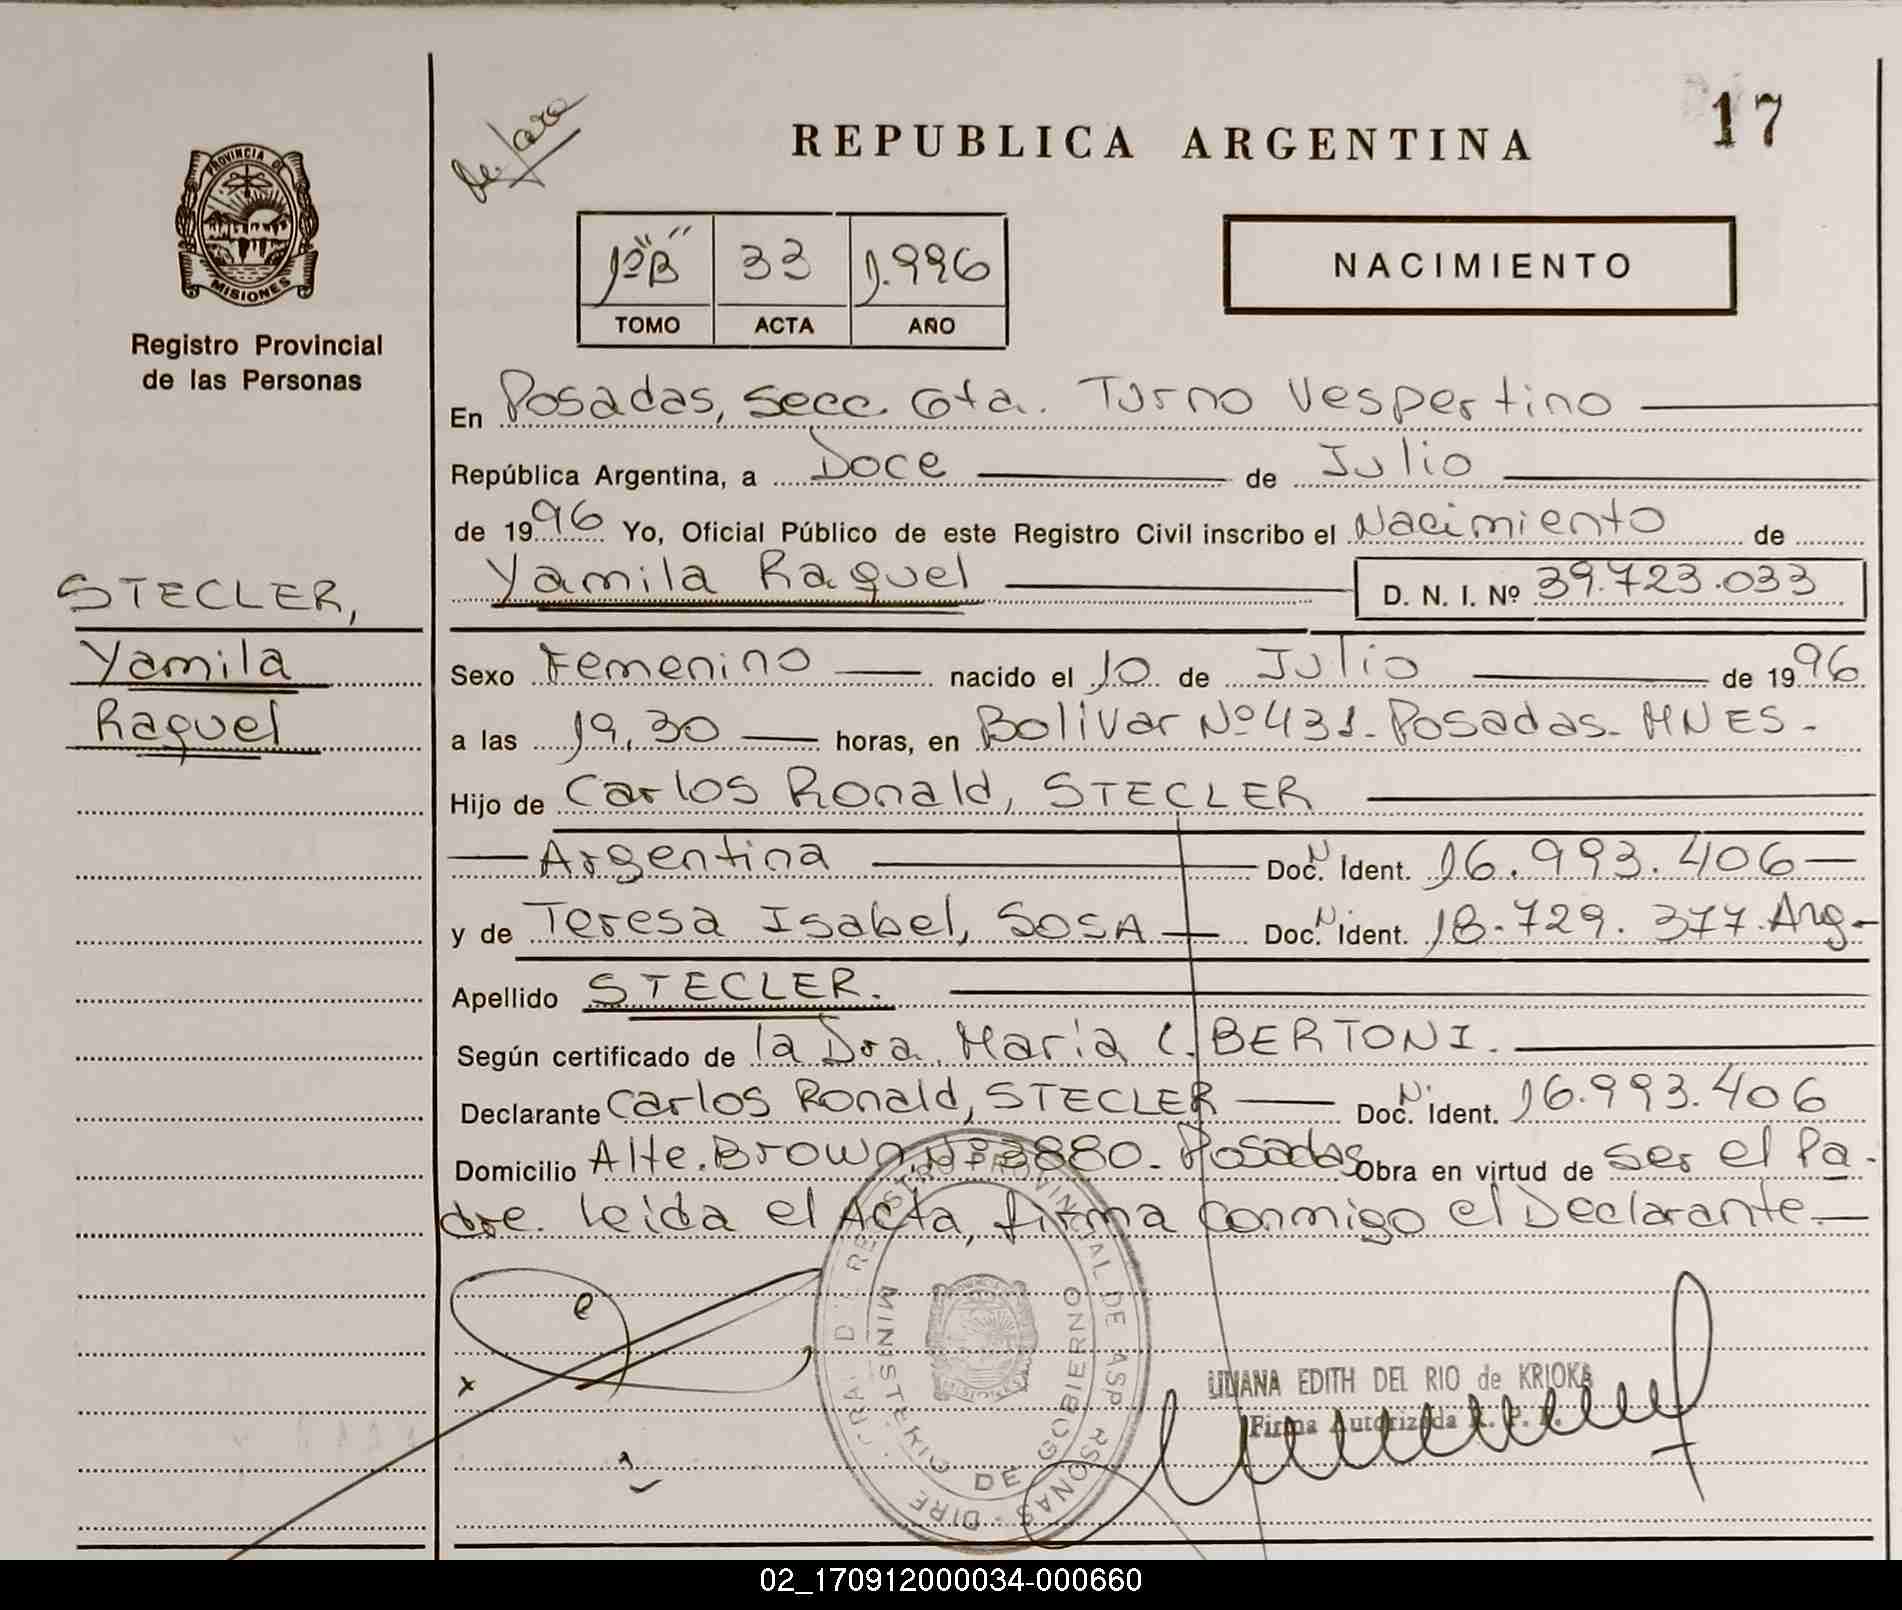 17
REPUBLICA ARGENTINA
PROVINCIA DE
MISIONES
Registro Provincial
de las Personas
1º"B" 33 1.996
TOMO ACTA AÑO
NACIMIENTO
En Posadas, Secc. 6ta. Turno Vespertino
República Argentina, a Doce de Julio
de 1996 Yo, Oficial Público de este Registro Civil inscribo el Nacimiento de
Yamila Raquel D. N. I. Nº 39.723.033
STECLER,
Yamila
Raquel
Sexo Femenino nacido el 10 de Julio de 1996
a las 19,30 horas, en Bolivar Nº 431. Posadas. MNES.
Hijo de Carlos Ronald, STECLER
Argentina Doc. N. Ident. 16.993.406
y de Teresa Isabel, SOSA Doc. N. Ident. 18.729.377. Arg.
Apellido STECLER.
Según certificado de la Dra. María C. BERTONI.
Declarante Carlos Ronald, STECLER Doc. N. Ident. 16.993.406
Domicilio Alte. Brown Nº 3880. Posadas Obra en virtud de ser el Pa-
dre. Leida el Acta, firma conmigo el Declarante.
REGISTRO PROVINCIAL DE
MINISTERIO DE GOBIERNO
LILIANA EDITH DEL RIO de KRIOKA
Firma Autorizada R. P. P.
02_170912000034-000660